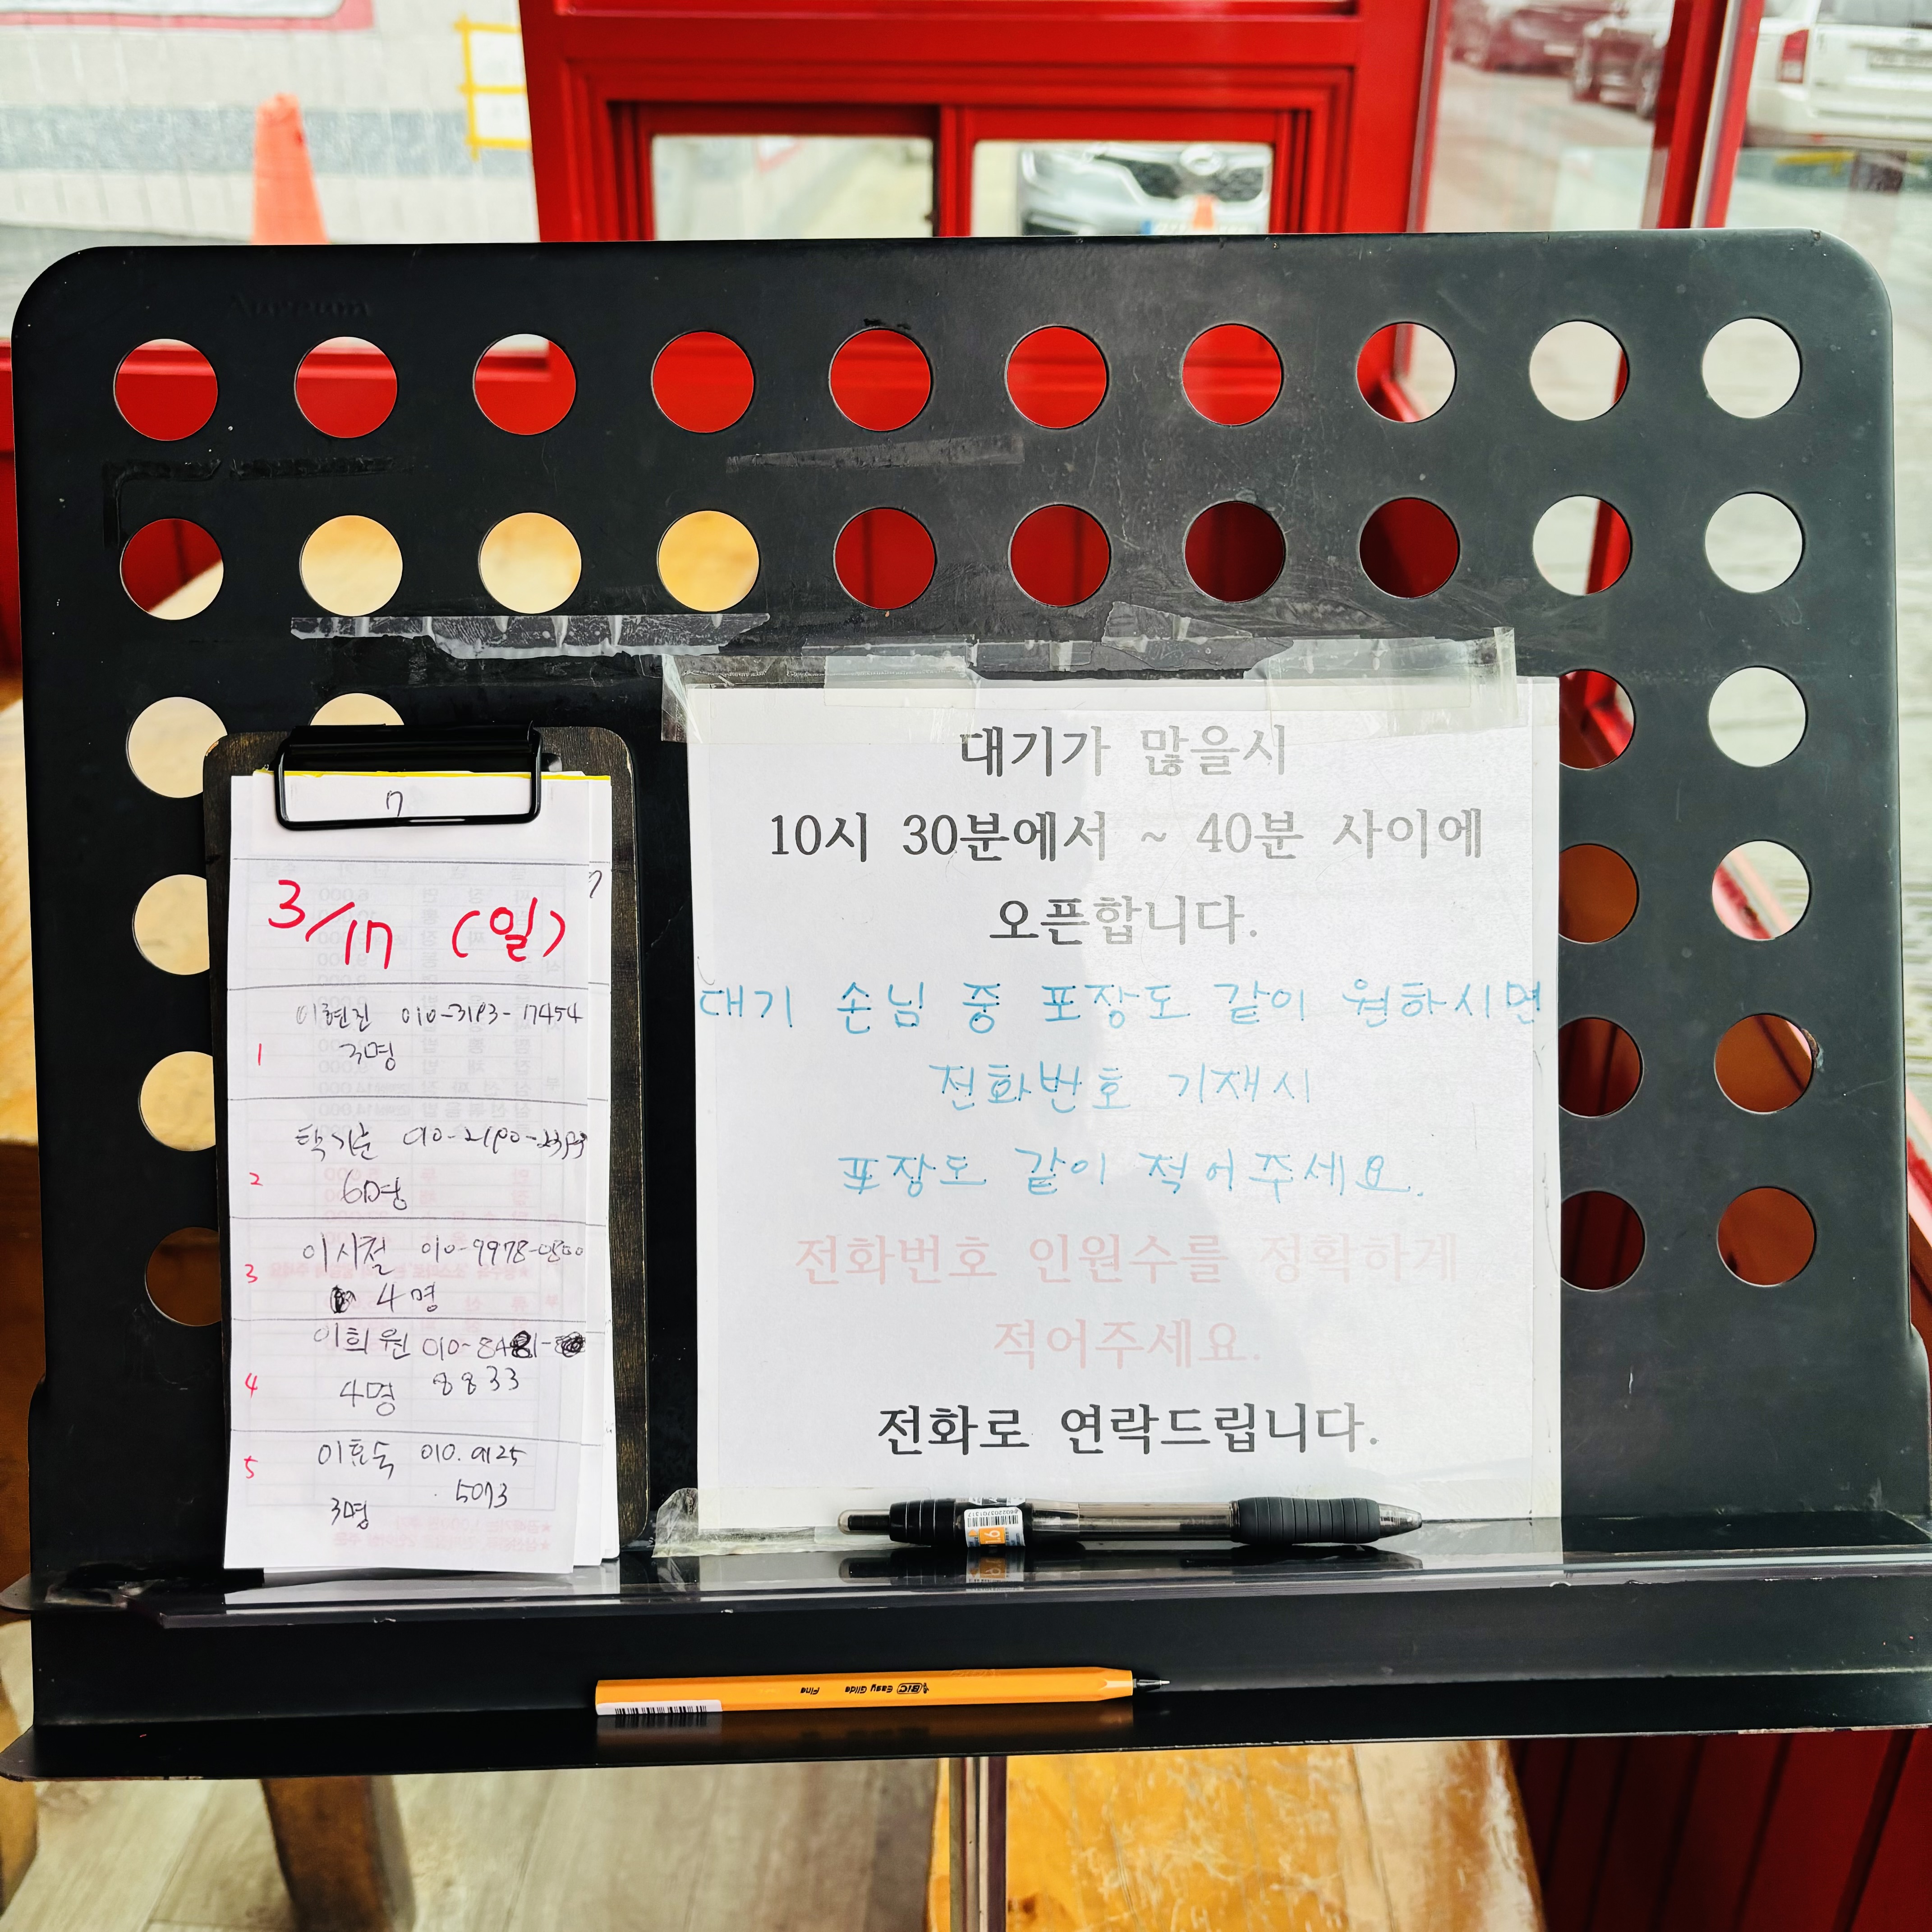 7
7
3/17 (일)
이현진 010-3193-7454
1
3명
탁기춘
2
6명
이시절 010-9978-0500
3
4명
이희원 010-8481-
4
4명 8833
이효숙 010. 9125
5
. 5073
3명
대기가 많을시
10시 30분에서 ~ 40분 사이에
오픈합니다.
대기 손님 중 포장도 같이 원하시면
전화번호 기재시
포장도 같이 적어주세요.
전화번호 인원수를 정확하게
적어주세요.
전화로 연락드립니다.
BIC Easy Glide Fine